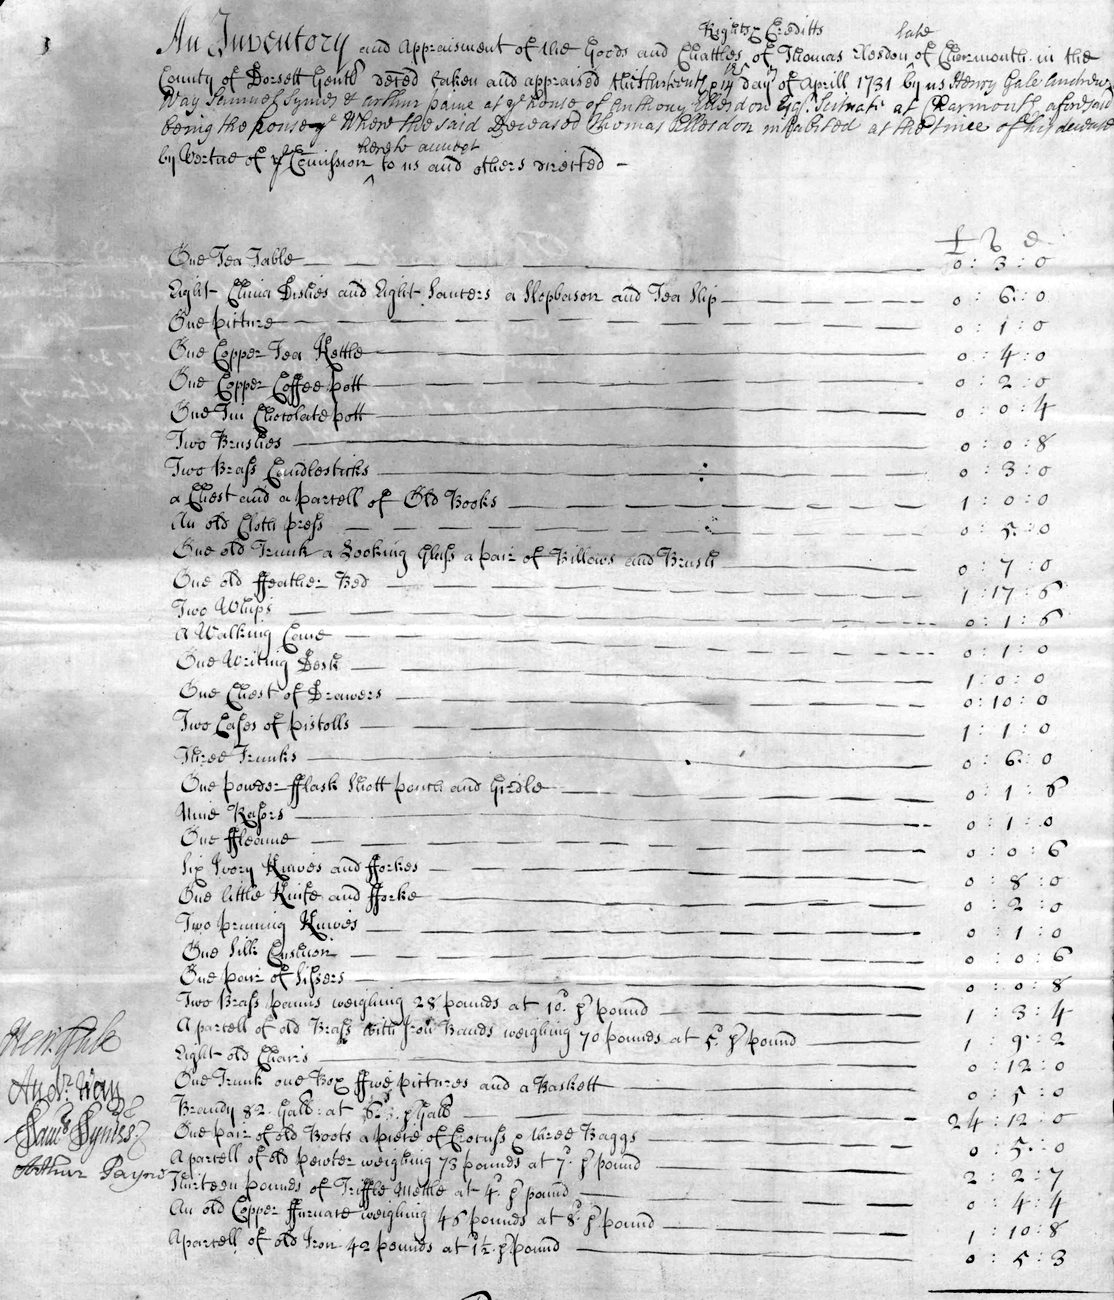 Rights Creditts late
An Inventory and Appraisment of the Goods and Chattles of Thomas Elesdon of Chermouth in the
County of Dorsett Gentt deced taken and appraised the thirteenth & 14 day of Aprill 1731 by us Henry Gale Andrew
Way Samuel Symes & Arthur paine at ye house of Anthony Ellesdon Esqr. Scituate at Charmouth aforesaid
being the house ye Where the said Deceased Thomas Ellesdon inhabited at the time of his decease
hereto annext
by Vertue of ye Comission to us and others directed -
£ s d
One Tea Table 0 : 3 : 0
Eight China Dishes and Eight Sawcers a Slopbason and Tea Slip 0 : 6 : 0
One picture 0 : 1 : 0
One Copper Tea Kettle 0 : 4 : 0
One Copper Coffee pott 0 : 2 : 0
One Tin Chocolate pott 0 : 0 : 4
Two Brushes 0 : 0 : 8
Two Brass Candlesticks 0 : 3 : 0
a Chest and a partell of Old Books 1 : 0 : 0
An old Cloth press 0 : 5 : 0
One old Trunk a Looking Glass a pair of Billows and Brush 0 : 7 : 0
One old ffeather Bed 1 : 17 : 6
Two Whips 0 : 1 : 6
a Walking Cane 0 : 1 : 0
One Writing Desk 1 : 0 : 0
One Chest of Drawers 0 : 10 : 0
Two Cases of pistolls 1 : 1 : 0
Three Trunks 0 : 6 : 0
One powder fflask Shott pouch and Girdle 0 : 1 : 6
Nine Rasors 0 : 1 : 0
One ffleame 0 : 0 : 6
Six Ivory Knives and fforkes 0 : 8 : 0
One little Knife and fforke 0 : 2 : 0
Two pruning Knives 0 : 1 : 0
One Silk Cushion 0 : 0 : 6
One pair of Sissers 0 : 0 : 8
Two Brass panns weighing 28 pounds at 10d. p pound 1 : 3 : 4
A partell of old Brass with Iron Bands weighing 70 pounds at 5d. p pound 1 : 9 : 2
Eight old Chairs 0 : 12 : 0
One Trunk one Box ffive pictures and a Baskett 0 : 5 : 0
Brandy 82 Galls: at 6s. p Gall 24 : 12 : 0
One pair of old Boots a piece of Crocuss & three Baggs 0 : 5 : 0
A partell of old pewter weighing 73 pounds at 7d. p pound 2 : 2 : 7
Thirteen pounds of Triffle Mettle at 4d. p pound 0 : 4 : 4
An old Copper ffurnace weighing 46 pounds at 8d. p pound 1 : 10 : 8
A partell of old Iron 42 pounds at 1½. p pound 0 : 5 : 3
Hen: Gale
Andr. Way
Samll Symes
Arthur Payne